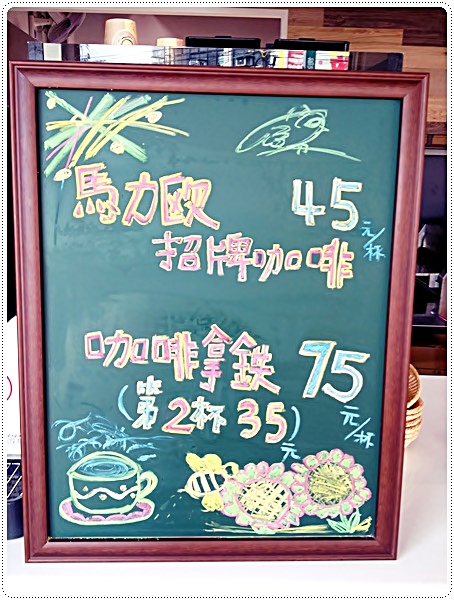 馬力歐 45元/杯
招牌咖啡
咖啡拿鉄 75元/杯
(第2杯35元)